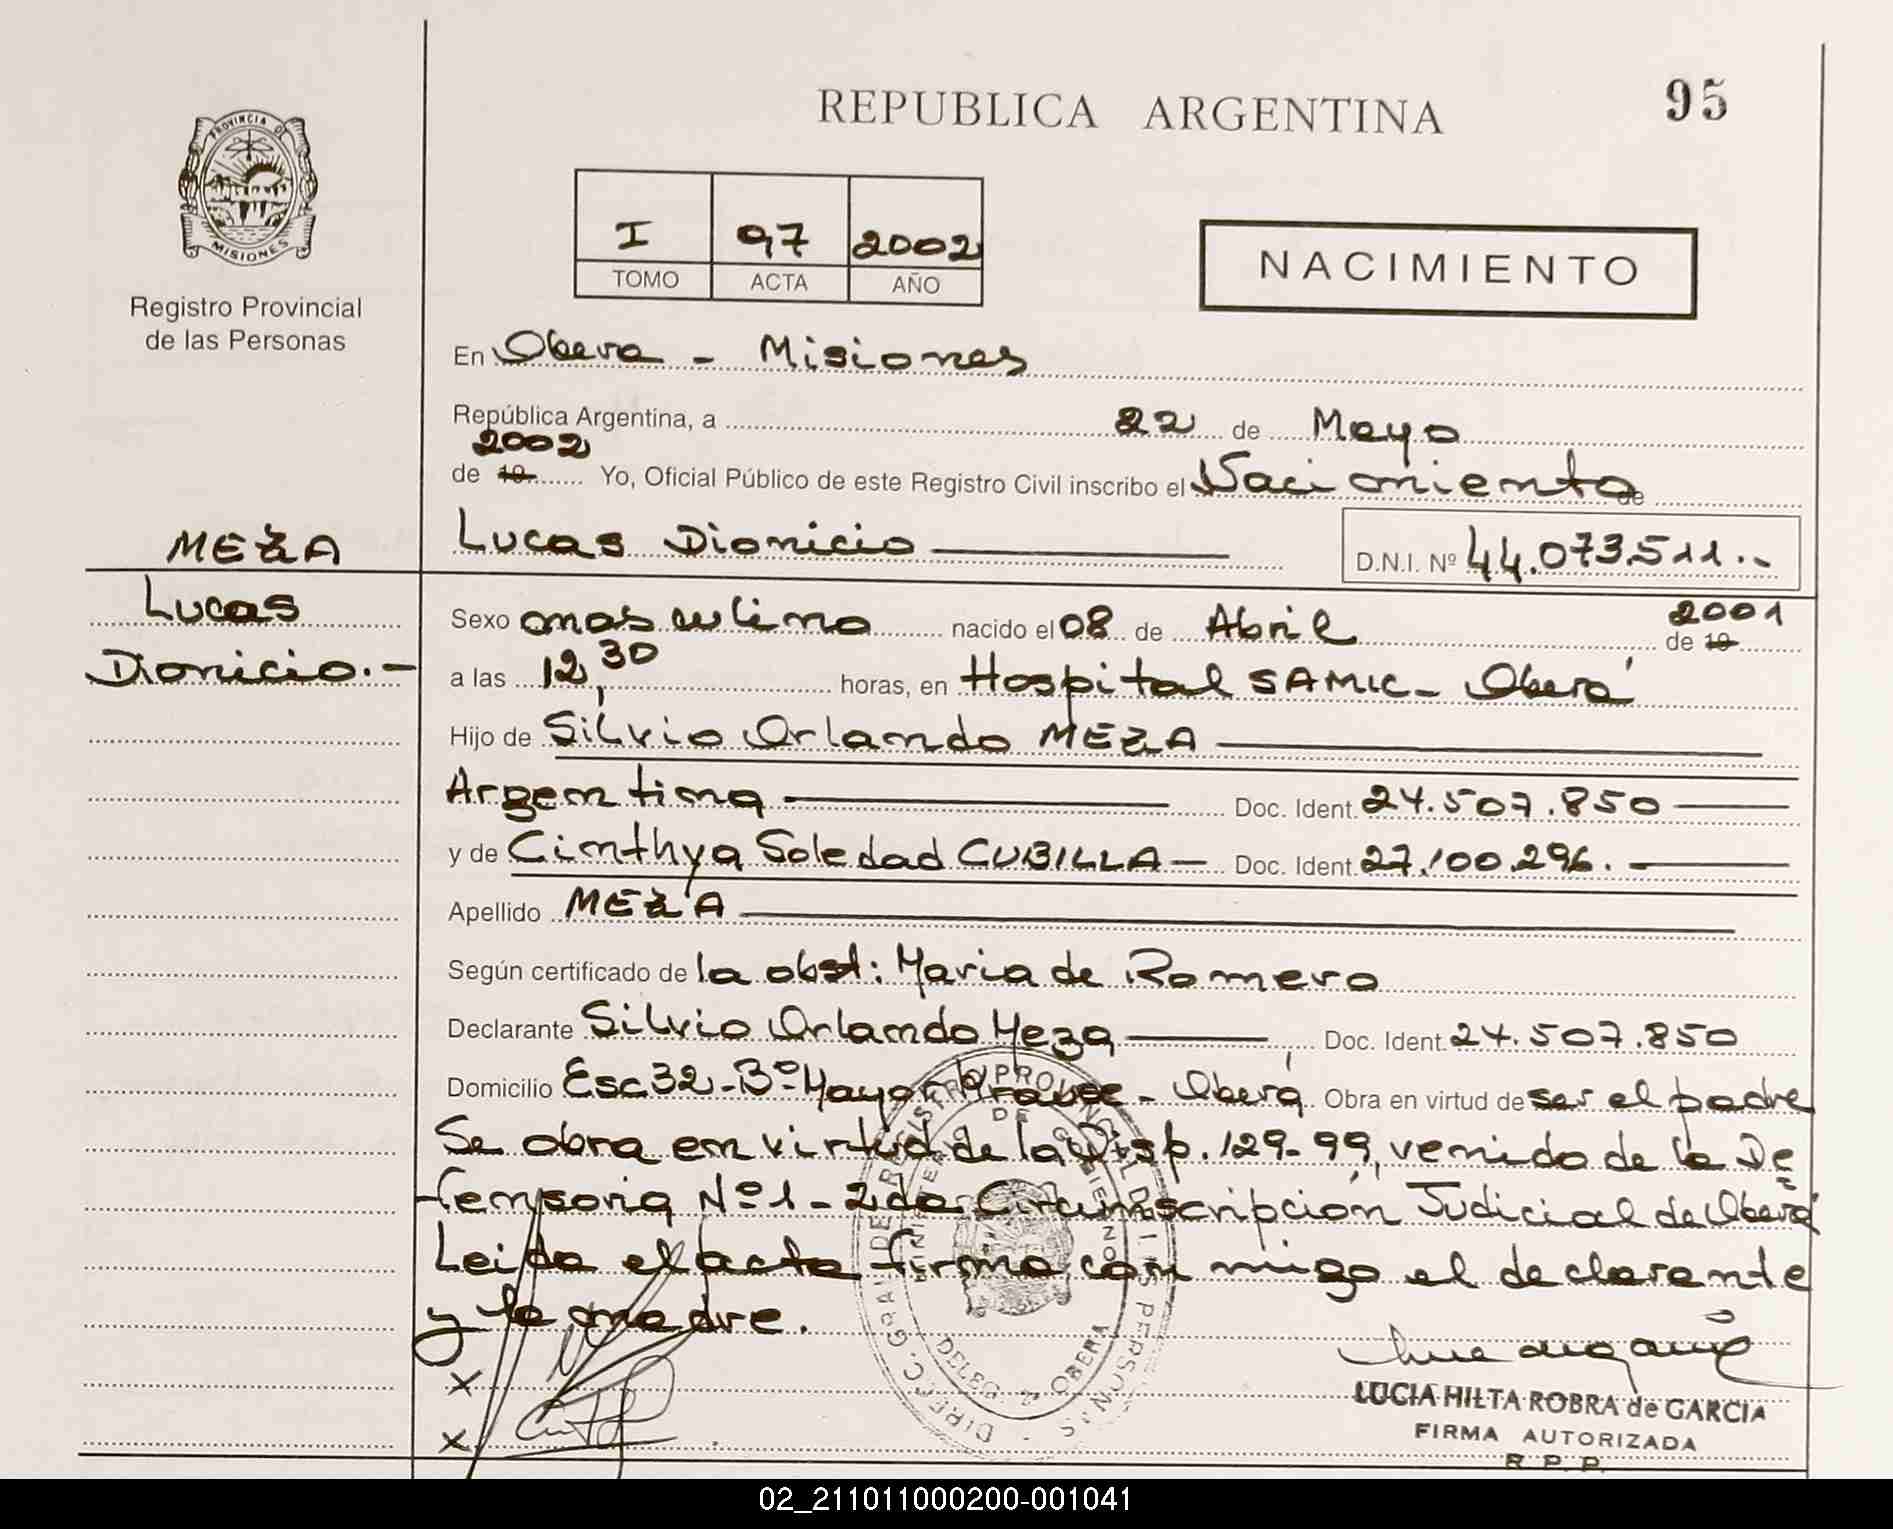 REPUBLICA ARGENTINA
95
PROVINCIA DE
MISIONES
Registro Provincial
de las Personas
I 97 2002
TOMO ACTA AÑO
NACIMIENTO
En Obera - Misiones
República Argentina, a 22 de Mayo
2002
de 19 Yo, Oficial Público de este Registro Civil inscribo el Nacimiento de
MEZA
Lucas Dionicio D.N.I. Nº 44.073.511.-
Lucas
Dionicio.-
Sexo masculino nacido el 08 de Abril de 19 2001
a las 12,30 horas, en Hospital SAMIC - Oberá
Hijo de Silvio Orlando MEZA
Argentina Doc. Ident. 24.507.850
y de Cinthya Soledad CUBILLA - Doc. Ident. 27.100.296.
Apellido MEZA
Según certificado de la obst: Maria de Romero
Declarante Silvio Orlando Meza Doc. Ident. 24.507.850
Domicilio Esc 32 - Bº Mayor - Oberá Obra en virtud de ser el padre
Se obra en virtud de la Disp. 129-99, venido de la De
fensoria Nº 1 - 2da Circunscripción Judicial de Oberá
Leida el acta firma con migo el declarante
y la madre.
x
x
LUCIA HILTA ROBRA de GARCIA
FIRMA AUTORIZADA
R. P. P.
02_211011000200-001041